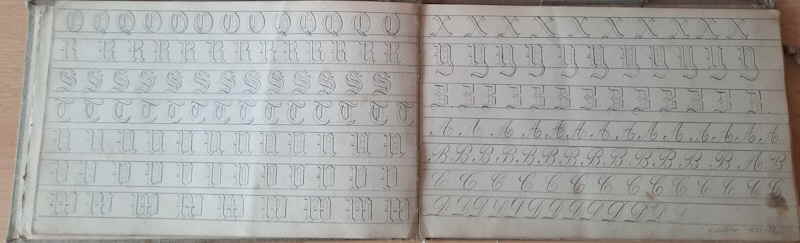 Q Q Q Q Q Q Q Q Q Q Q Q
R R R R R R R R R R R R R
S S S S S S S S S S S S S
T T T T T T T T T T T T T T
U U U U U U U U U U U U
V V V V V V V V V V V V
W W W W W W W W W
X X X X X X X X X X X
Y Y Y Y Y Y Y Y Y Y Y
Z Z Z Z Z Z Z Z Z Z Z Z Z
A A A A A A A A A A A A A A
B B B B B B B B B B B B B A B
C C C C C C C C C C C C C C
D D D D D D D D D D D D